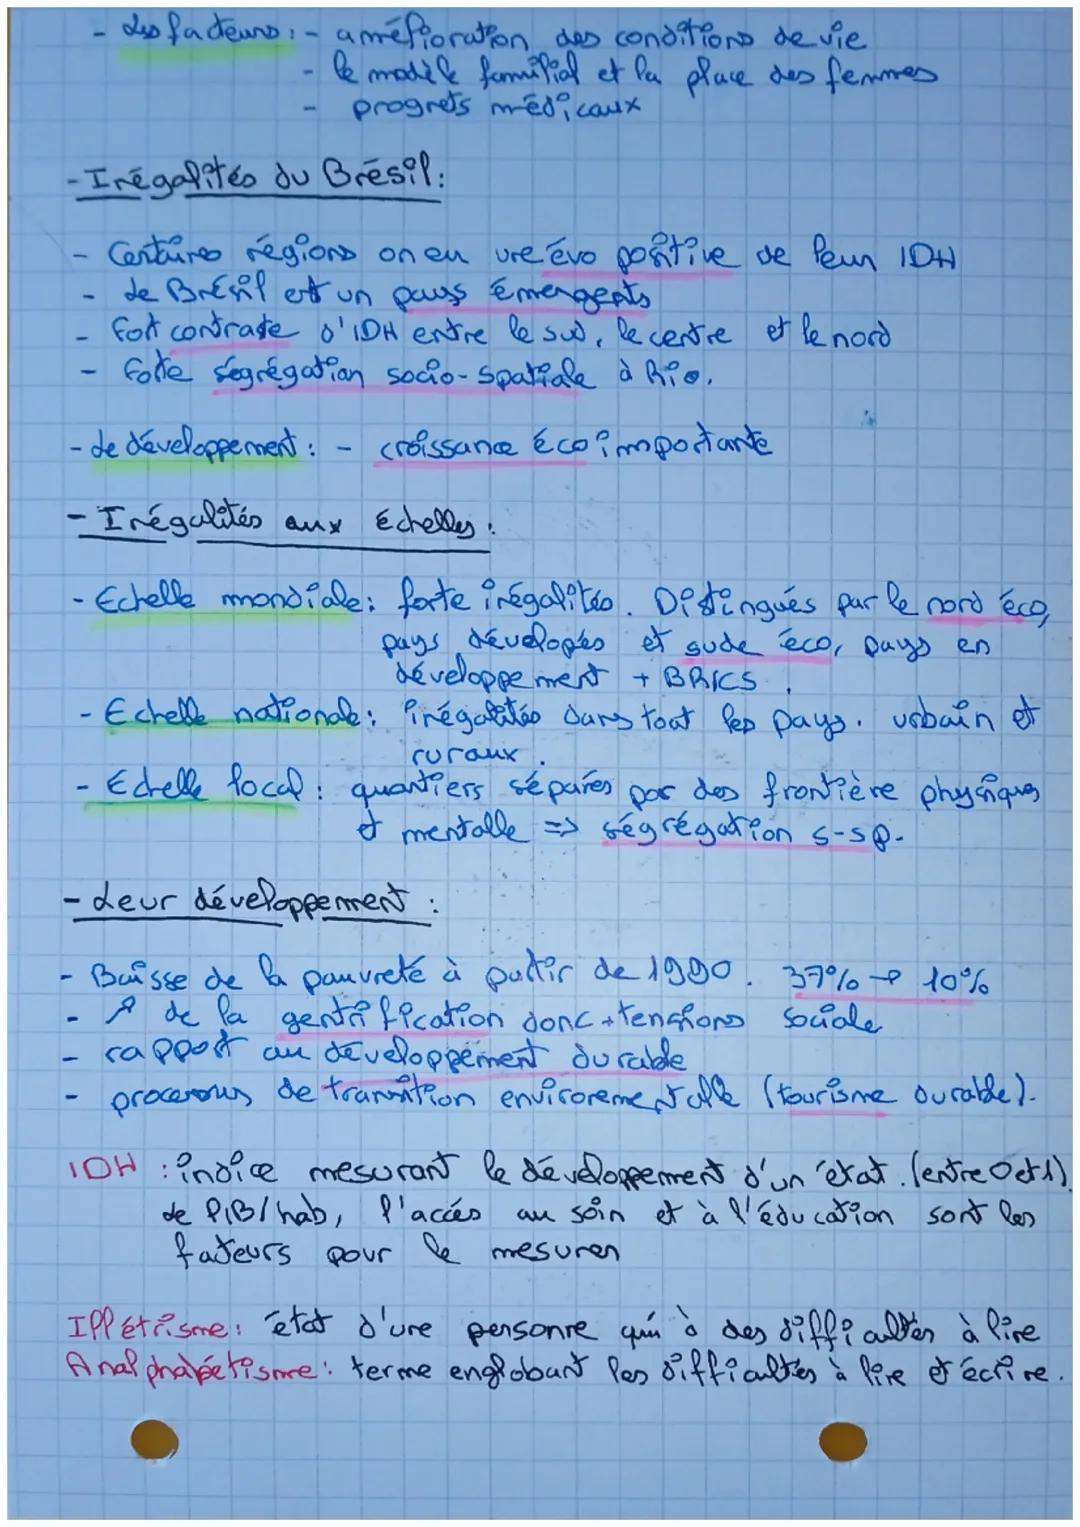 - Les facteurs : - amélioration des conditions de vie
- le modèle familial et la place des femmes
- progrets médicaux
- Inégalités du Brésil :
- Certaines régions on eu une évo positive de leur IDH
- Le Brésil est un pays émergents
- Fort contraste d'IDH entre le sud, le centre et le nord
- forte ségrégation socio-spatiale à Rio.
- Le développement : - croissance éco importante
- Inégalités aux échelles :
- Echelle mondiale : forte inégalités. Distingués par le nord éco,
pays dévelopés et sude éco, pays en
développement + BRICS.
- Echelle nationale : inégalités dans tout les pays. urbain et
ruraux.
- Echelle local : quartiers séparés par des frontière physiques
et mentalle => ségrégation s-sp.
- Leur développement :
- Baisse de la pauvreté à partir de 1990. 37% → 10%
- ↗ de la gentrification donc + tensions sociale
- rapport au développement durable
- processus de transition environementalle (tourisme durable).
IDH : indice mesurant le développement d'un état. (entre 0 et 1)
Le PIB/hab, l'accés au soin et à l'éducation sont les
fateurs pour le mesurer
Illétrisme : état d'une personne qui à des difficultés à lire
Analphabétisme : terme englobant les difficultés à lire et écrire.